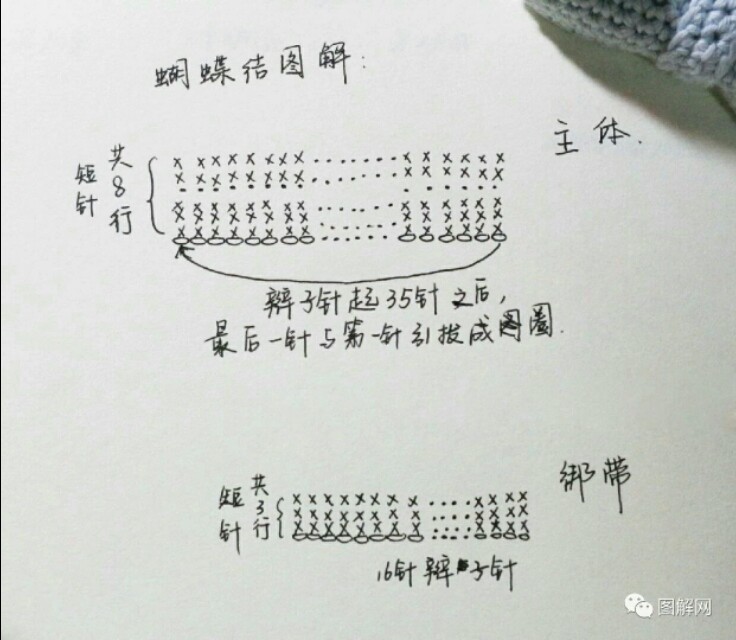 蝴蝶结图解:
主体.
短针
共8行
辫子针起35针之后,
最后一针与第一针引拔成圈.
绑带
短针
共3行
16针辫子针
图解网